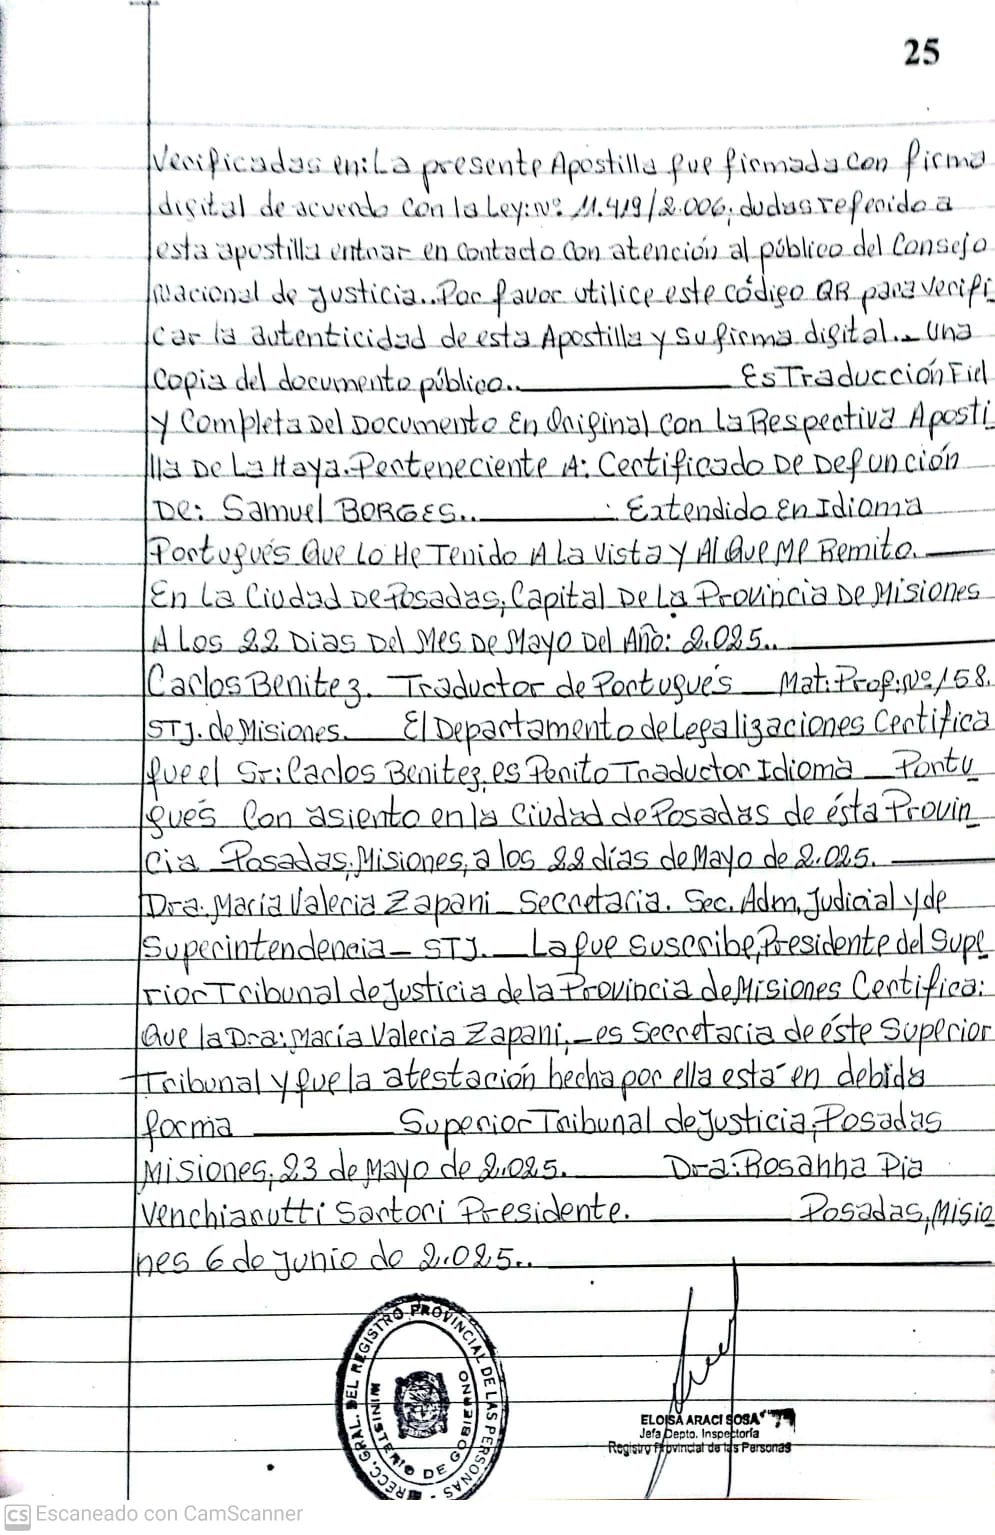 25
Verificadas en: La presente Apostilla fue firmada con firma
digital de acuerdo con la Ley: Nº: 11.419/2.006, dudas referido a
esta apostilla entrar en contacto con atención al público del Consejo
Nacional de Justicia.. Por favor utilice este código QR para verifi
car la autenticidad de esta Apostilla y su firma digital.. Una
copia del documento público.. Es Traducción Fiel
y Completa Del Documento En Original Con La Respectiva Aposti
lla De La Haya. Perteneciente A: Certificado De Defunción
De: Samuel BORGES.. : Extendido En Idioma
Portugués Que Lo He Tenido A La Vista y Al Que Me Remito.
En La Ciudad De Posadas, Capital De La Provincia De Misiones
A Los 22 Dias Del Mes De Mayo Del Año: 2.025..
Carlos Benitez. Traductor de Portugués Mat: Prof: Nº 158.
STJ. de Misiones. El Departamento de Legalizaciones Certifica
que el Sr: Carlos Benitez, es Perito Traductor Idioma Portu
gués Con asiento en la Ciudad de Posadas de ésta Provin
cia Posadas, Misiones, a los 22 días de Mayo de 2.025.
Dra. María Valeria Zapani Secretaria. Sec. Adm. Judicial y de
Superintendencia - STJ. La que suscribe, Presidente del Supe
rior Tribunal de Justicia de la Provincia de Misiones Certifica:
Que la Dra: María Valeria Zapani, - es Secretaria de éste Superior
Tribunal y que la atestación hecha por ella está en debida
forma Superior Tribunal de Justicia, Posadas
Misiones, 23 de Mayo de 2.025. Dra: Rosanna Pia
Venchiarutti Sartori Presidente. Posadas, Misio
nes 6 de Junio de 2.025..
DIRECC. GRAL. DEL REGISTRO PROVINCIAL DE LAS PERSONAS -
MINISTERIO DE GOBIERNO
ELOISA ARACI SOSA
Jefa Depto. Inspectoría
Registro Provincial de las Personas
CS Escaneado con CamScanner